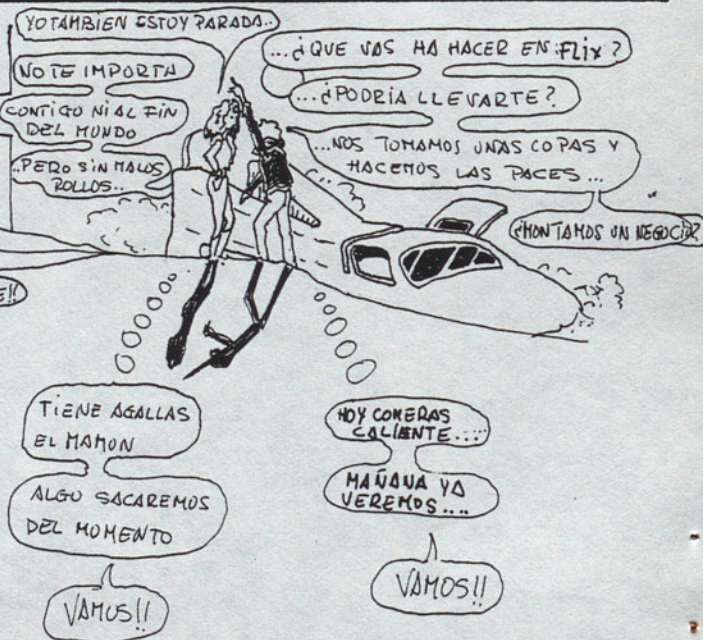 YO TAMBIEN ESTOY PARADA..
NO TE IMPORTA
CONTIGO NI AL FIN
DEL MUNDO
..PERO SIN MALOS
ROLLOS..
...¿QUE VAS HA HACER EN :FLIX?
...¿PODRÍA LLEVARTE?
...NOS TOMAMOS UNAS COPAS Y
HACEMOS LAS PACES...
¿MONTAMOS UN NEGOCIO?
TIENE AGALLAS
EL MAMON
ALGO SACAREMOS
DEL MOMENTO
VAMOS!!
HOY COMERAS
CALIENTE....
MAÑANA YA
VEREMOS....
VAMOS!!